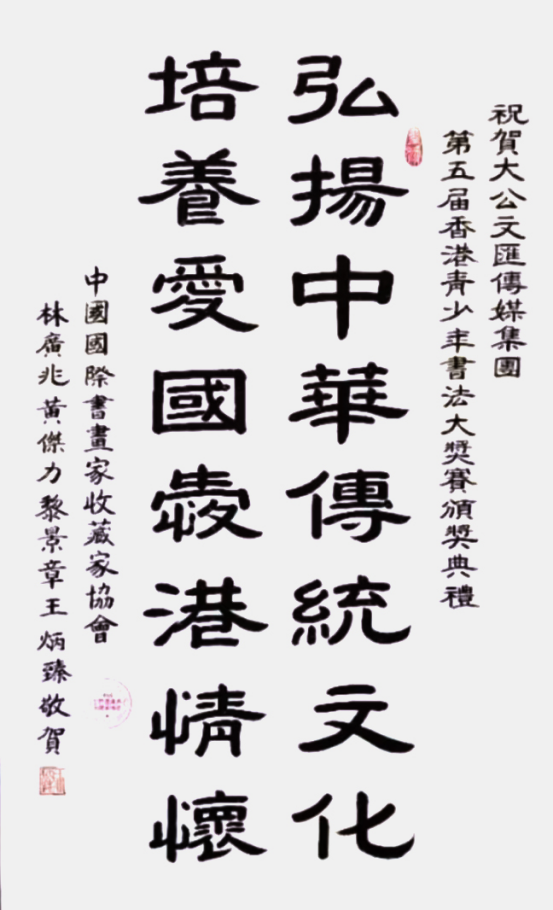 祝賀大公文匯傳媒集團
第五届香港青少年書法大獎賽頒獎典禮
弘揚中華傳統文化
培養愛國愛港情懷
中國國際書畫家收藏家協會
林廣兆黃傑力黎景章王炳臻敬賀